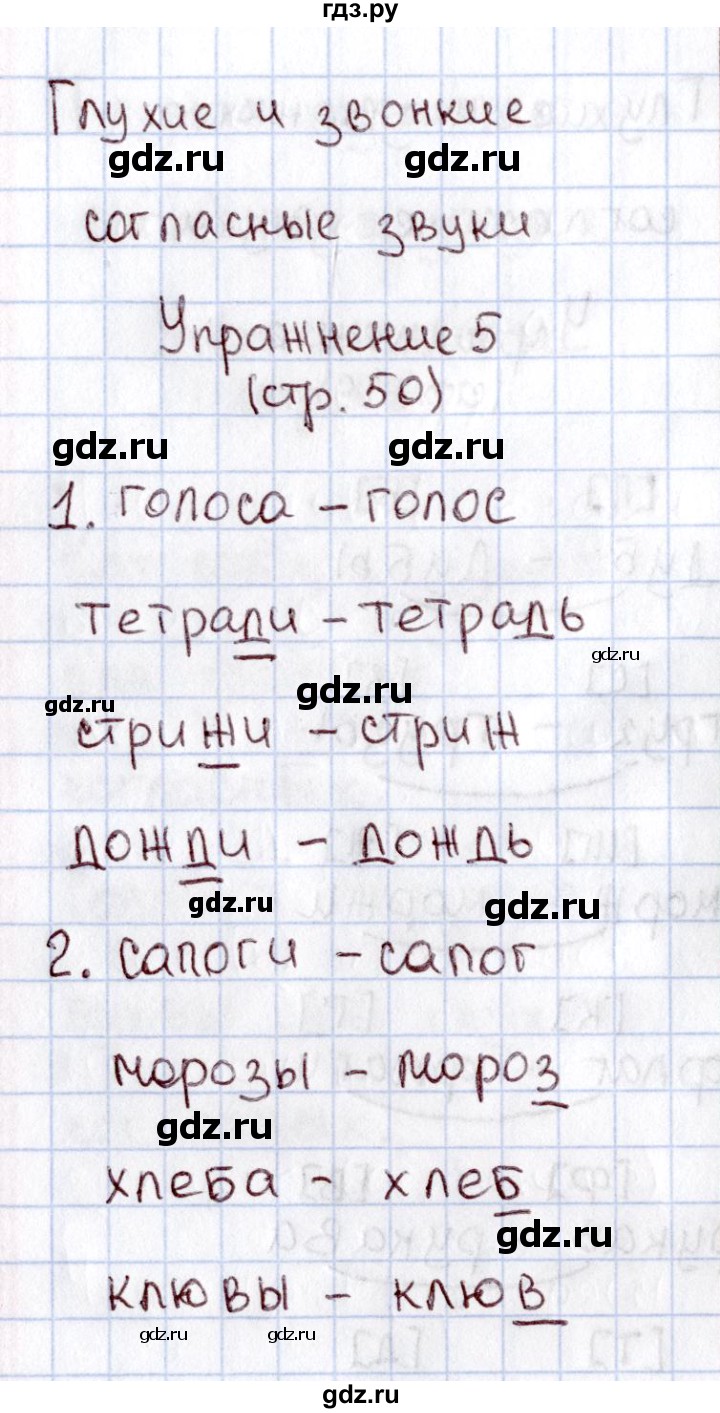 гдз.ру
Глухие и звонкие
gdz.ru gdz.ru
согласные звуки
Упражнение 5
(стр. 50)
gdz.ru gdz.ru
1. голоса – голос
тетради – тетрадь
gdz.ru
gdz.ru gdz.ru
стрижи – стриж
дожди – дождь
gdz.ru gdz.ru
2. сапоги – сапог
морозы – мороз
gdz.ru
хлеба – хлеб
gdz.ru
клювы – клюв
gdz.ru gdz.ru
gdz.ru